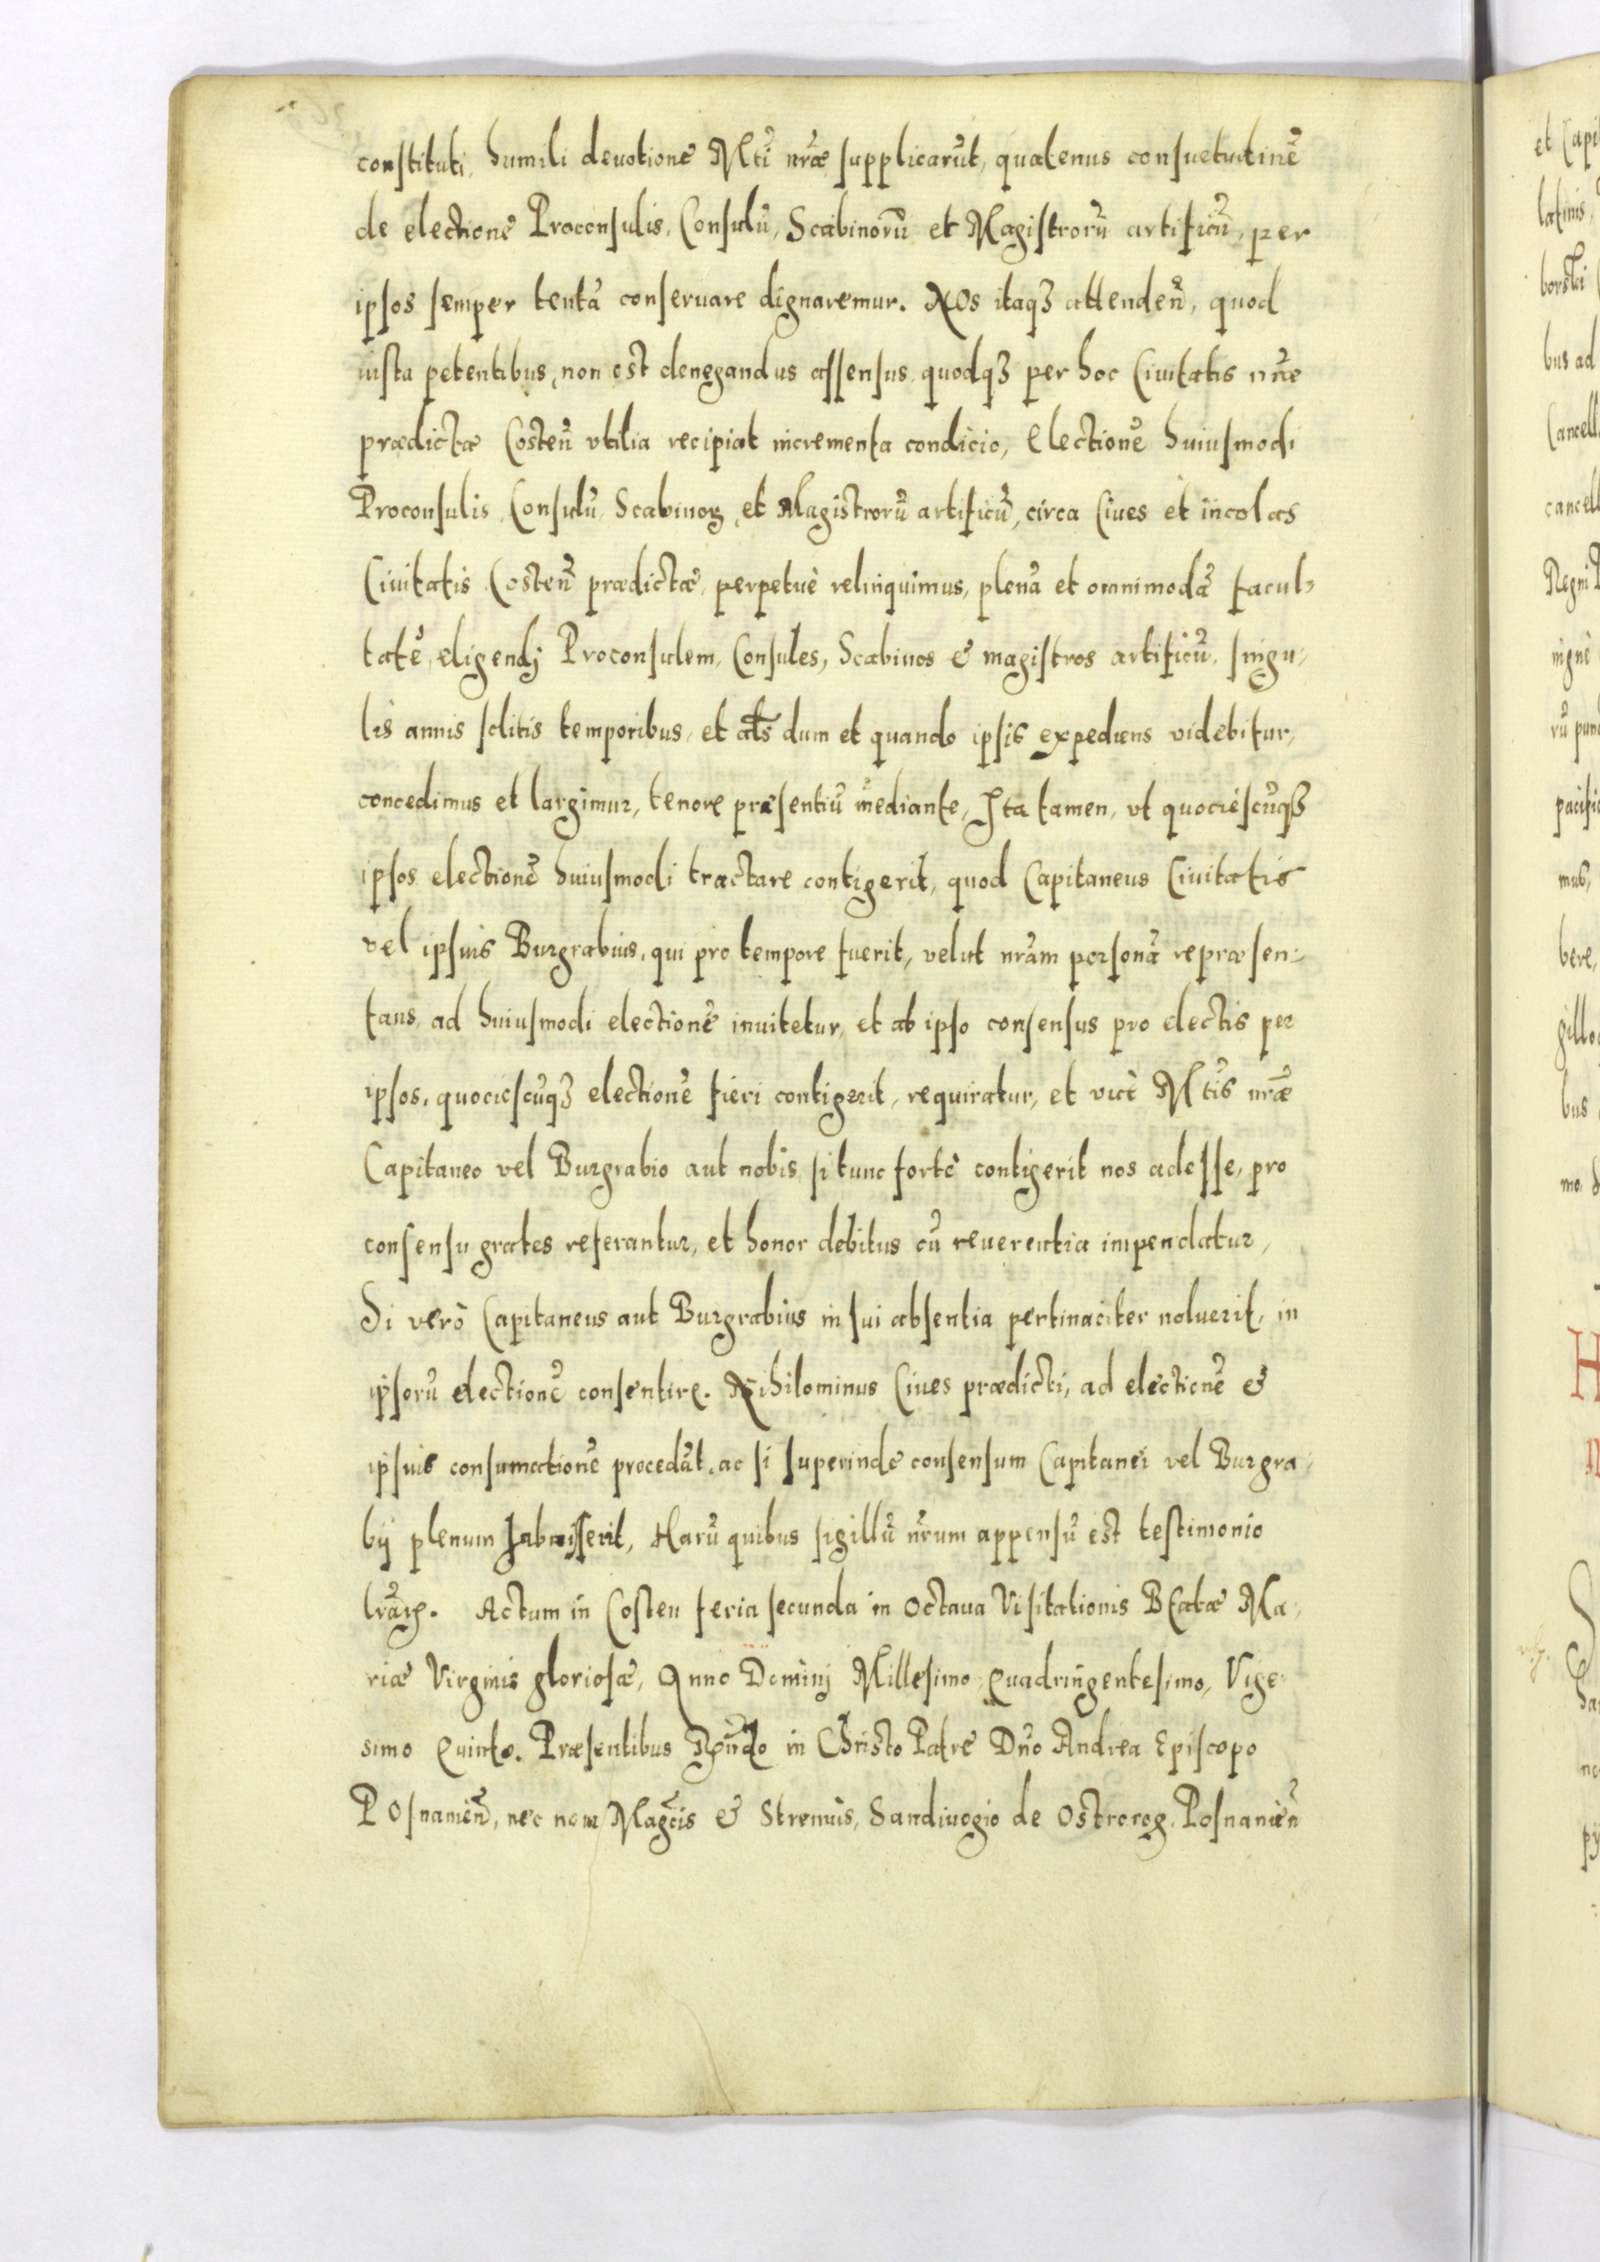 constituti, humili deuotione Mti nr̃æ supplicarũt, quatenus consuetudinẽ
de electionẽ Proconsulis, Consulũ, Scabinorũ et Magistrorũ artificũ, per
ipsos semper tentã conseruare dignaremur. NOs itaqʒ attendeñ, quod
iusta petentibus, non est denegandus assensus, quodqʒ per hoc Ciuitatis nr̃æ
prædictæ Costeñ vtilia recipiat incrementa condicio, Electionẽ huiusmodi
Proconsulis, Consulũ, Scabinoꝝ, et Magistrorũ artificũ, circa Ciues et incolas
Ciuitatis Costeñ prædictæ, perpetuè relinquimus, plenã et omnimodã facul-
tatẽ, eligendj Proconsulem, Consules, Scabinos & magistros artificũ, singu-
lis annis solitis temporibus, et al̃s dum et quando ipsis expediens videbitur,
concedimus et largimur, tenore præsentiũ mediante, Ita tamen, vt quociescũqʒ
ipsos electionẽ huiusmodi tractare contigerit, quod Capitaneus Ciuitatis
vel ipsius Burgrabius, qui pro tempore fuerit, velut nr̃am personã repræsen-
tans, ad huiusmodi electionẽ inuitetur, et ab ipso consensus pro electis per
ipsos, quociescũqʒ electionẽ fieri contigerit, requiratur, et vicè Mtis nr̃æ
Capitaneo vel Burgrabio aut nobis, si tunc fortè contigerit nos adesse, pro
consensu grates referantur, et honor debitus cũ reuerentia impendatur,
Si verò Capitaneus aut Burgrabius in sui absentia pertinaciter noluerit, in
ipsorũ electionẽ consentire. Nihilominus Ciues prædicti, ad electionẽ &
ipsius consumationẽ procedãt, ac si superinde consensum Capitanei vel Burgra-
bij plenum habuisserit, Harũ quibus sigillũ nr̃um appensũ est testimonio
lr̃arꝫ. Actum in Costen feria secunda in Octaua Visitationis BEatæ Ma-
riæ Virginis gloriosæ, Anno Dominj Millesimo Quadringentesimo, Vige-
simo Quinto. Præsentibus Rñdo in Christo Patre Dño Andrea Episcopo
POsnanieñ, nec non Magcis & Strenuis, Sandiuogio de Ostrorog, Posnanieñ
et Capi
latinis,
borski
bus ad
Cancell
cancell
Regni
nignè
rũ pun
pacific
mus,
bere,
gillo
bus
mo
H